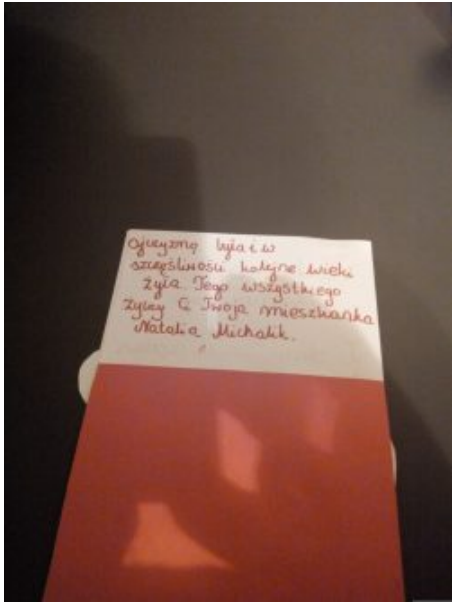 ojczyzną była i w
szczęśliwości kolejne wieki
żyła. Tego wszystkiego
życzy Ci Twoja mieszkanka
Natalia Michalik.